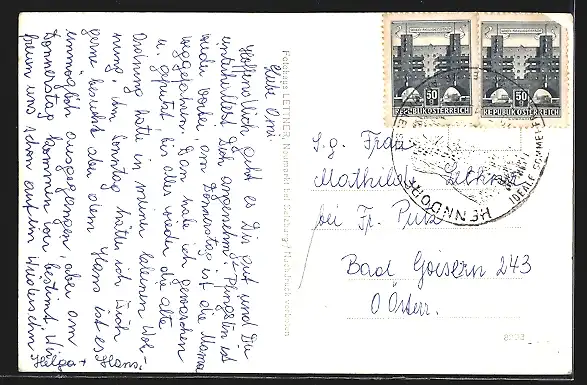 Liebe Omi!
Hoffentlich geht es Dir gut und Du
unterhaltest Dich angenehm. Pfingsten ist
leider vorbei am Donnerstag ist die Mama
weggefahren. Dann habe ich gewaschen
u. geputzt bis alles wieder die alte
Ordnung hatte in meiner kleinen Woh-
nung. Am Sonntag hätte ich Dich
gerne besucht aber dem Hans ist es
unmöglich ausgegangen, aber am
Donnerstag kommen wir bestimmt. Wir
freun uns schon auf ein Wiedersehn
Helga + Hans.
Fotohaus LETTNER, Neumarkt bei Salzburg / Nachdruck verboten
REPUBLIK ÖSTERREICH
50 g
REPUBLIK ÖSTERREICH
50 g
HENNDORF
IDEALE SOMMERF
S.g. Frau
Mathilde
bei Fr. Putz
Bad Goisern 243
O Österr.